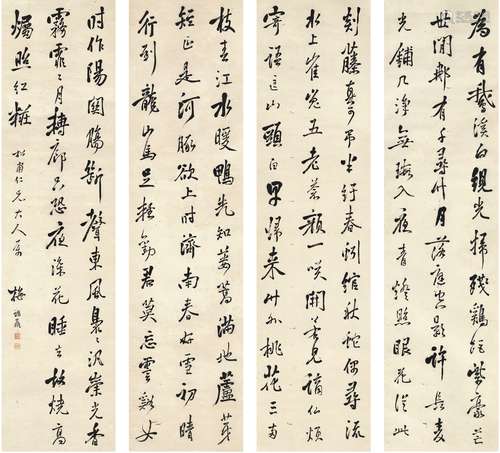 為有鵝溪白繭光掃殘雞距紫豪芒
世間那有千尋竹月落庭空影許長麥
光鋪几淨無瑕入夜青燈照眼花從此
剡藤真可弔半紆春蚓綰秋蛇偶尋流
水上崔嵬五老蒼顏一笑開若見謫仙煩
寄語匡山頭白早歸來竹外桃花三兩
枝春江水暖鴨先知蔞蒿滿地蘆芽
短正是河豚欲上時濟南春好雪初晴
行到龍山馬足輕使君莫忘霅谿女
時作陽關腸斷聲東風裊裊汎崇光香
霧霏霏月轉廊只恐夜深花睡去故燒高
燭照紅粧
松甫仁兄大人屬 梅